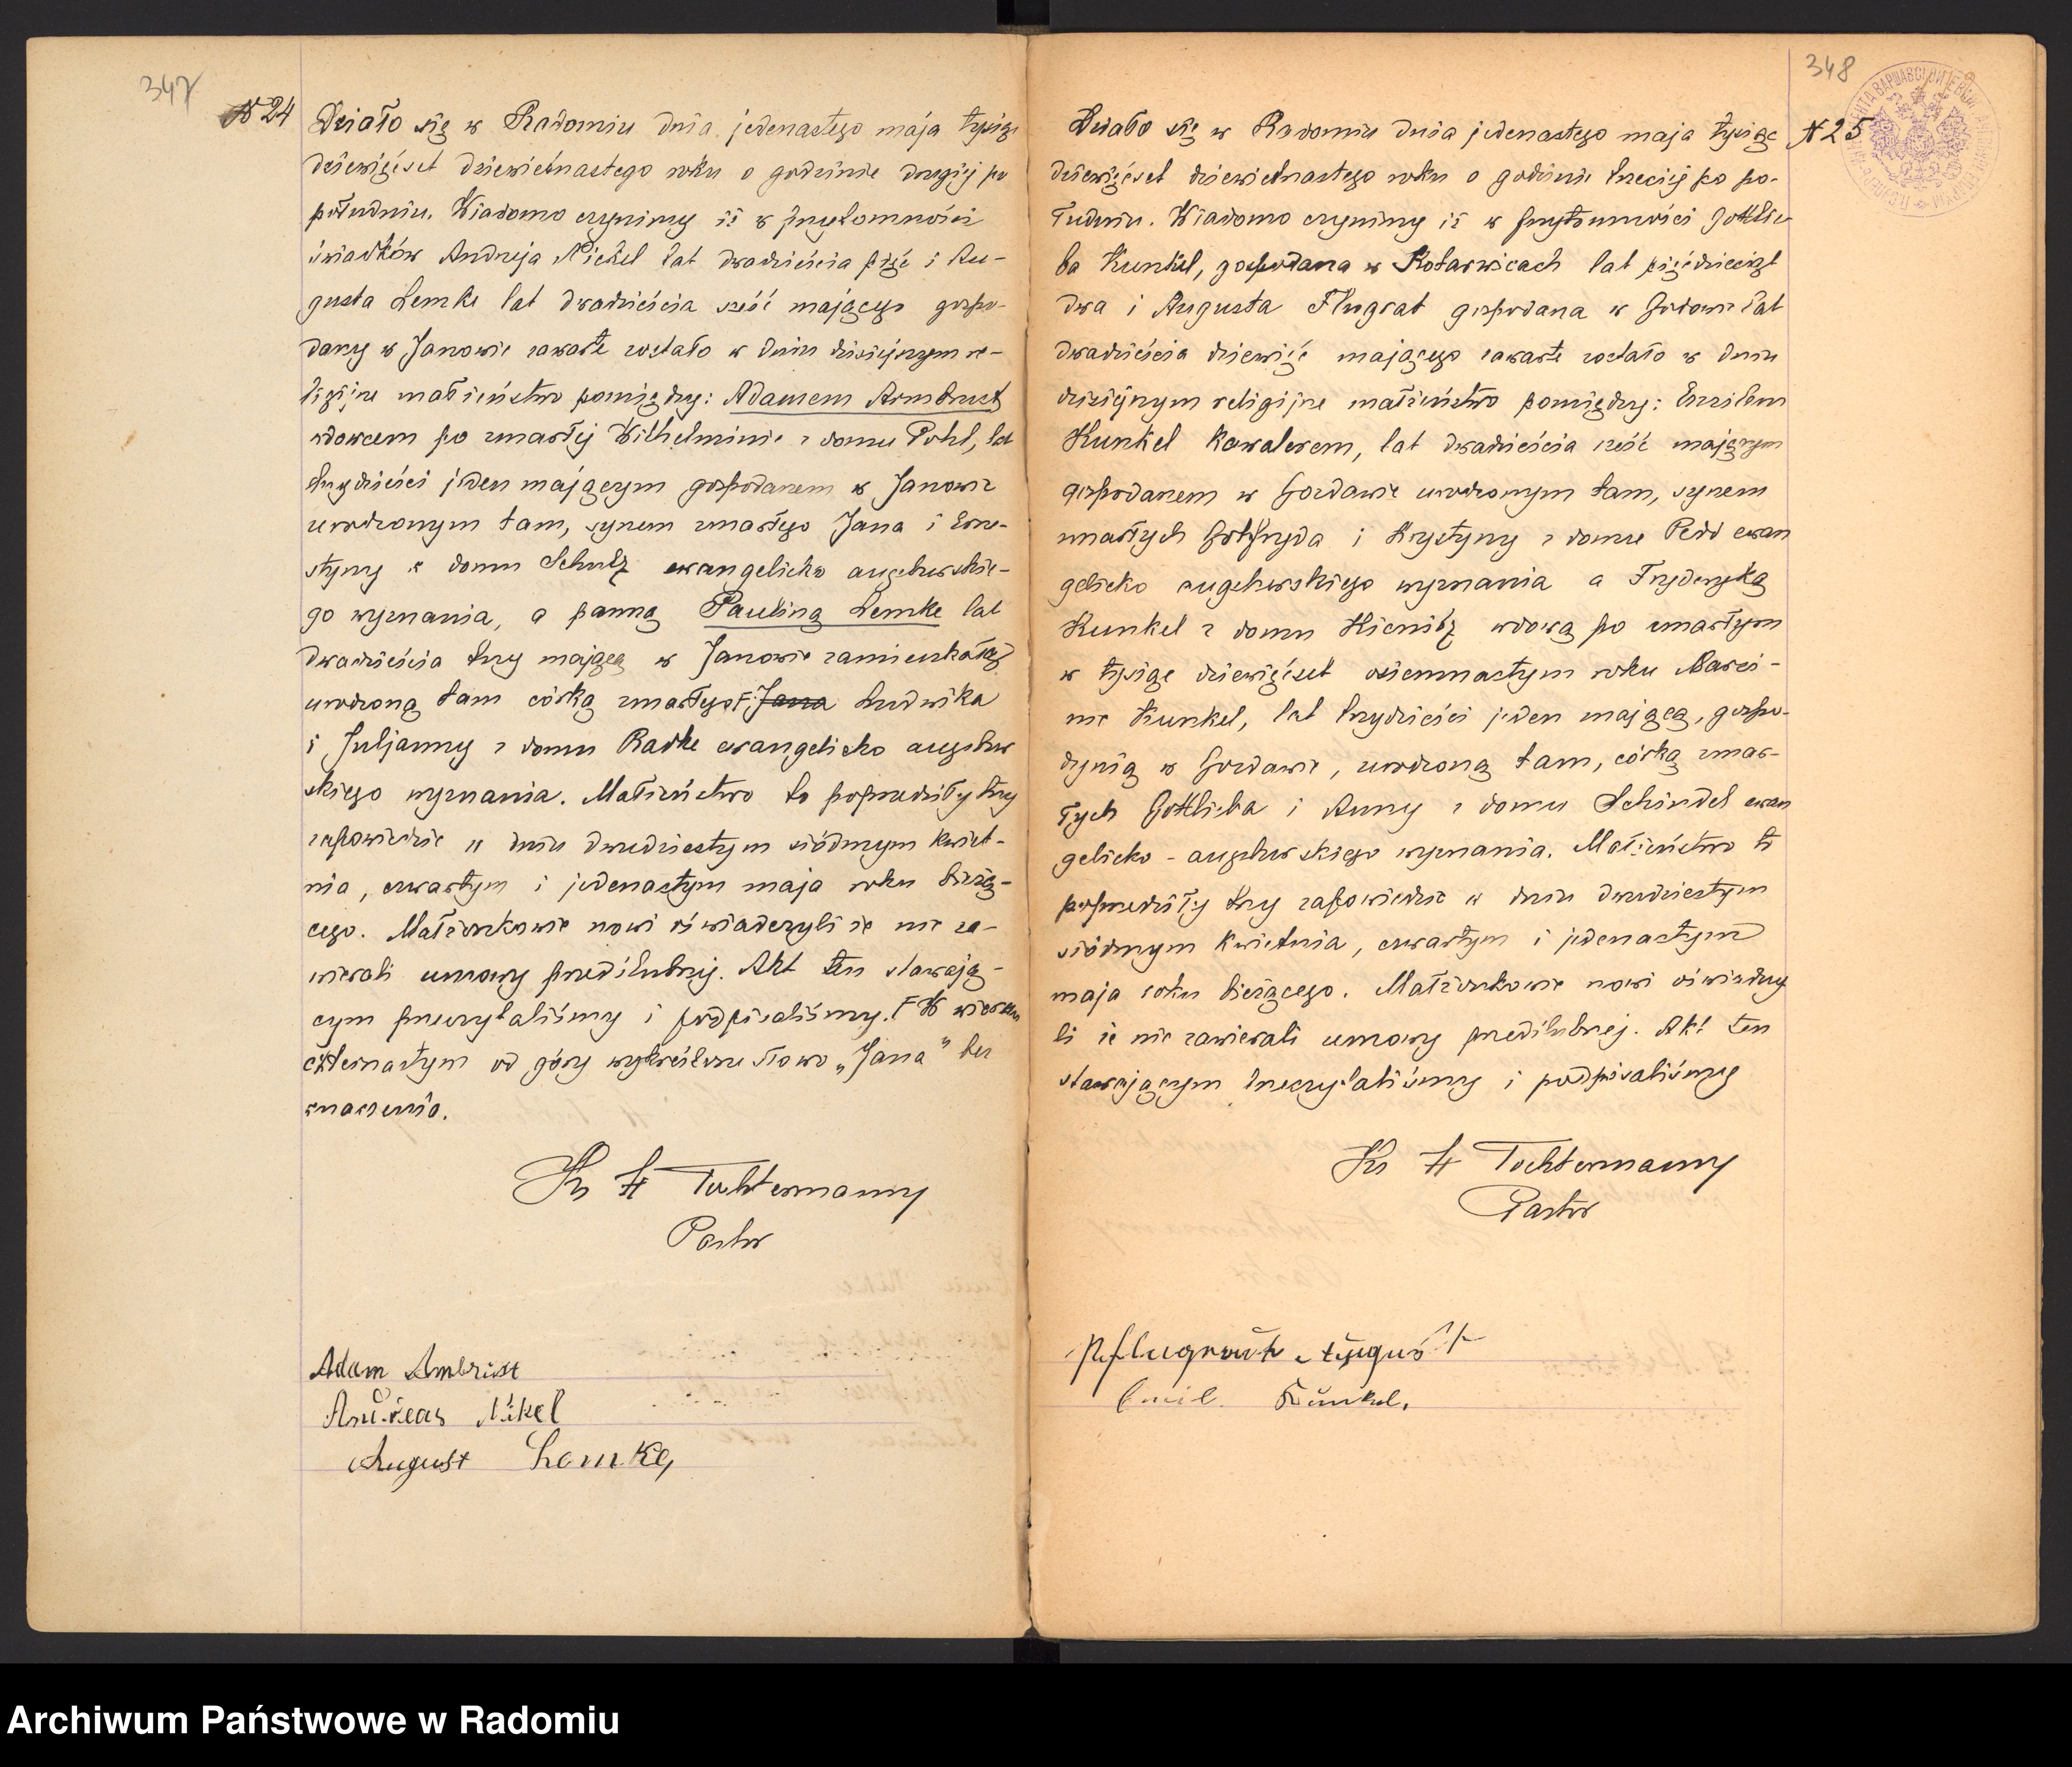 347
N 24
Działo się w Radomiu dnia jedenastego maja tysiąc
dziewięćset dziewietnastego roku o godzinie drugiej po
południu. Wiadomo czynimy iż w przytomności
świadków Andrzeja Nickel lat dwadzieścia pięć i Au-
gusta Lemke lat dwadzieścia sześć mającego gospo-
darzy w Janowie zawarte zostało w dniu dzisiejszym re-
ligijne małżeństwo pomiędzy: Adamem Armbrust
wdowcem po zmarłej Wilhelminie z domu Pohl, lat
trzydzieści jeden mającym gospodarzem w Janowie
urodzonym tam, synem zmarłego Jana i Erne-
styny z domu Schulz ewangelicko augsburskie-
go wyznania, a panną Pauliną Lemke lat
dwadzieścia trzy mającą w Janowie zamieszkałą
urodzoną tam córką zmarłego F. Jana Ludwika
i Juljanny z domu Radke ewangelicko augsbur
skiego wyznania. Małżeństwo to poprzedziły trzy
zapowiedzie w dniu dwudziestym siódmym kwiet-
nia, czwartym i jedenastym maja roku bieżą-
cego. Małżonkowie nowi oświadczyli że nie za-
wierali umowy przedślubnej. Akt ten stawają-
cym przeczytaliśmy i podpisaliśmy. F W wierszu
czternastym od góry wykreślone słowo „Jana" bez
znaczenia.
Ks H Tochtermann
Pastor
Adam Ambrist
Andreas Nikel
August Lemke,
348
N 25
Działo się w Radomiu dnia jedenastego maja tysiąc
dziewięćset dziewietnastego roku o godzinie trzeciej po po-
łudniu. Wiadomo czynimy iż w przytomności Gottlie
ba Kunkel, gospodarza w Kotarwicach lat pięćdziesiąt
dwa i Augusta Flugrat gospodarza w lat
dwadzieścia dziewięć mającego zawarte zostało w dniu
dzisiejszym religijne małżeństwo pomiędzy: Emilem
Kunkel kawalerem, lat dwadzieścia sześć mającym
gospodarzem w Gozdawie urodzonym tam, synem
zmarłych Gotfryda i Krystyny z domu ewan
gelicko augsburskiego wyznania a Fryderyką
Kunkel z domu Kienitz wdową po zmarłym
w tysiąc dziewięćset osiemnastym roku Marci-
nie Kunkel, lat trzydzieści jeden mającą, gospo-
dynią w Gozdawie, urodzoną tam, córką zmar-
łych Gottlieba i Anny z domu Schindel ewan
gelicko - augsburskiego wyznania. Małżeństwo to
poprzedziły trzy zapowiedzie w dniu dwudziestym
siódmym kwietnia, czwartym i jedenastym
maja roku bieżącego. Małżonkowie nowi oświadczy
li że nie zawierali umowy przedślubnej. Akt ten
stawającym przeczytaliśmy i podpisaliśmy
Ks H Tochtermann
Pastor
Pflugradt August
Emil Kunkel.
Archiwum Państwowe w Radomiu